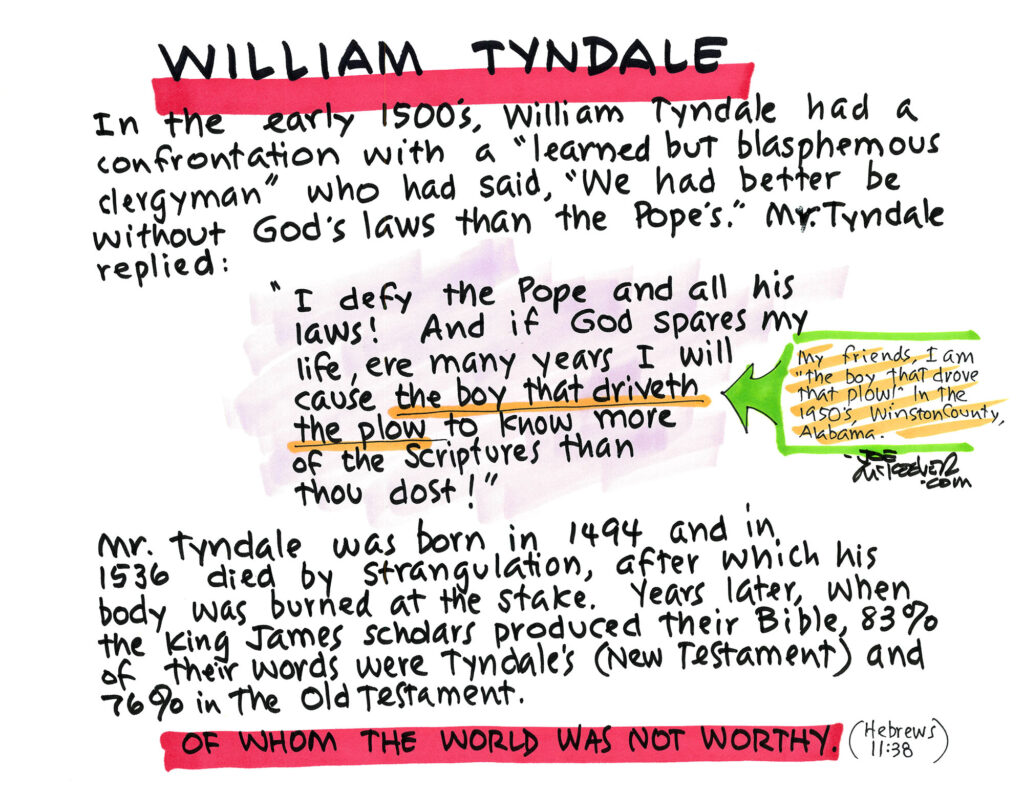 WILLIAM TYNDALE
In the early 1500's, William Tyndale had a
confrontation with a "learned but blasphemous
clergyman" who had said, "We had better be
without God's laws than the Pope's." Mr. Tyndale
replied:
"I defy the Pope and all his
laws! And if God spares my
life, ere many years I will
cause the boy that driveth
the plow to know more
of the Scriptures than
thou dost!"
My friends, I am
"the boy that drove
that plow!" In the
1950's, Winston County,
Alabama.
-JOE
McKEEVER
.com
Mr. Tyndale was born in 1494 and in
1536 died by strangulation, after which his
body was burned at the stake. Years later, when
the King James scholars produced their Bible, 83%
of their words were Tyndale's (New Testament) and
76% in the Old Testament.
OF WHOM THE WORLD WAS NOT WORTHY.
(Hebrews
11:38)